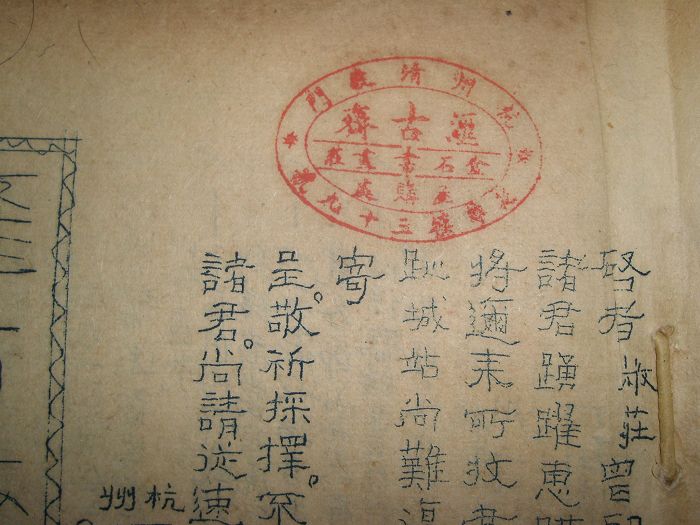 杭州清泰門
三十九號
滙古齋
金石書畫莊
啓者敝莊曾印
諸君踴躍惠購
將邇来所收書
趾城站尚難
寄
呈。敬祈採擇。
諸君。尚請從速
杭州